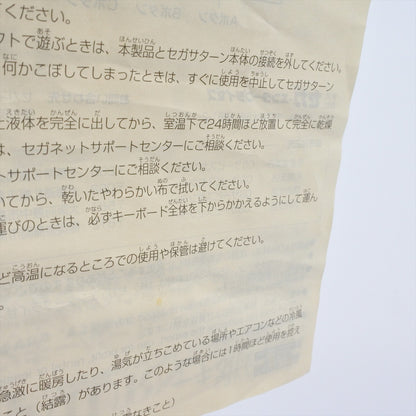 てください。
フトで遊ぶときは、本製品とセガサターン本体の接続を外してください。
何かこぼしてしまったときは、すぐに使用を中止してセガサターン
た液体を完全に出してから、室温下で24時間ほど放置して完全に乾燥
は、セガネットサポートセンターにご相談ください。
トサポートセンターにご相談ください。
いてから、乾いたやわらかい布で拭いてください。
運びのときは、必ずキーボード全体を下からかかえるようにして運ん
ど高温になるところでの使用や保管は避けてください。
。
急激に暖房したり、湯気が立ちこめている場所やエアコンなどの冷風
こと(結露)があります。このような場合には1時間ほど使用を控え
なきこと)